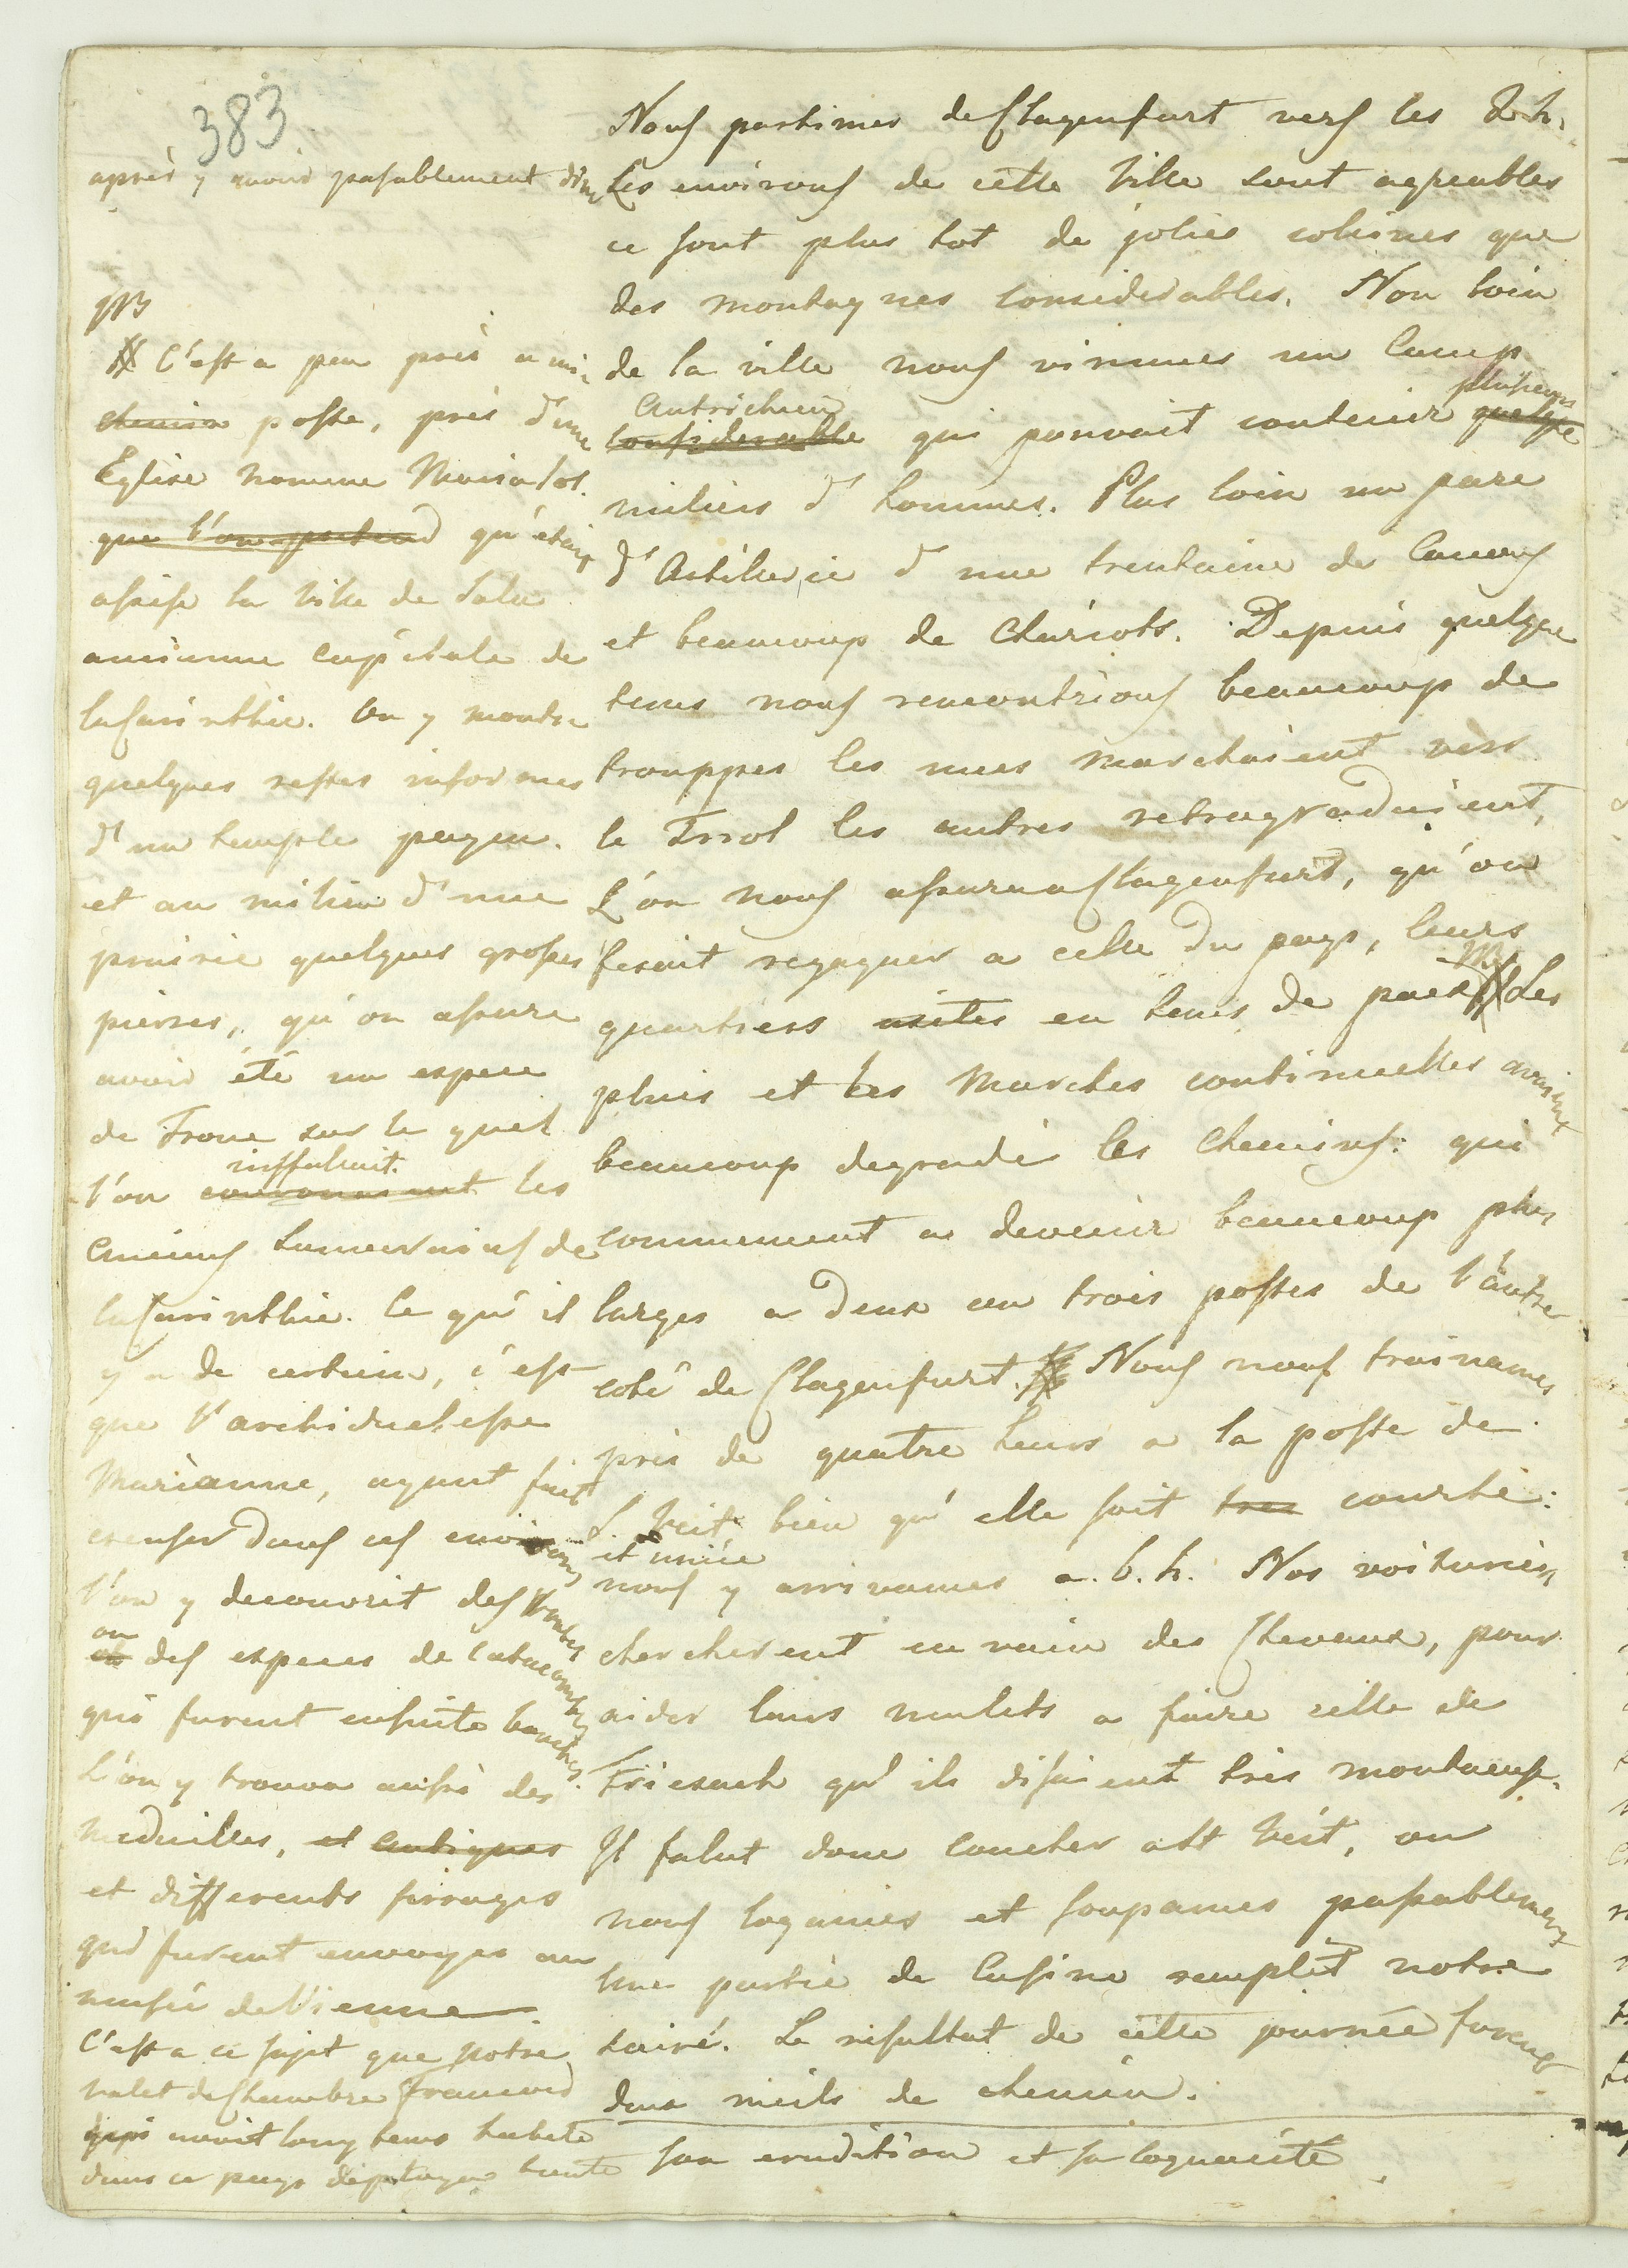 383
après y avoir passablement diné
NB
C'est a peu près a mi-
chemin poste, près d'une
Eglise nomme Mariasol.
que l'on pretend qu'étoit
assise la Ville de Sala
ancienne capitale de
la Carinthie. On y montre
quelques restes informes
d'un temple payen.
et au milieu d'une
prairie quelques grosses
pierres, qu'on assure
avoir été un espece
de Trone sur le quel
installait
l'on couronnait les
anciens Souverains de
la Carinthie. Ce qu'il
y a de certain, c'est
que l'archiduchesse
Marianne, ayant fait
creuser dans ces environs
l'on y decouvrit des
ou
et des especes de Catacombes
qui furent ensuite bouchés.
L'on y trouva aussi des
medailles, et antiques
et differents
qui furent envoyés au
musée de Vienne.
C'est a ce sujet que notre
valet de Chambre Francois
qui avoit long tems habité
dans ce pays deploya toute
Nous partimes de Clagenfurt vers les 2 h.
Les environs de cette Ville sont agreables
ce sont plus tot de jolies colines que
des montagnes considerables. Non loin
de la ville nous vinmes un Camp
Autrichien plusieurs
considerable qui pouvait contenir quelque
miliers d'hommes. Plus loin un parc
d'Artilerie d'une trentaine de Canons
et beaucoup de Chariots. Depuis quelque
tems nous rencontrions beaucoup de
trouppes les unes marchaient vers
le Tirol les autres retrogradaient,
L'on nous assura a Clagenfurt, qu'on
fesait regagner a celle du pays, leurs
quartiers usités en tems de paix Les
pluies et les Marches continuelles avaient
beaucoup degradé les Chemins: qui
commencent a devenir beaucoup plus
larges a deux ou trois postes de l'autre
coté de Clagenfurt. Nous nous trainames
près de quatre heurs a la poste de
S. Veit bien qu'elle soit tres courte:
et unie
nous y arrivames a. 6. h. Nos voituriers
chercherent en vain des Chevaux, pour
aider leurs mulets a faire celle de
Friesach qu'ils disaient très montueuse.
Il falut donc coucher a St Veit, ou
nous logames et soupames passablement
Une partie de Casino remplit notre
soiré. Le resultat de cette journée furent
deux miels de chemin.
son erudition et sa loquacité